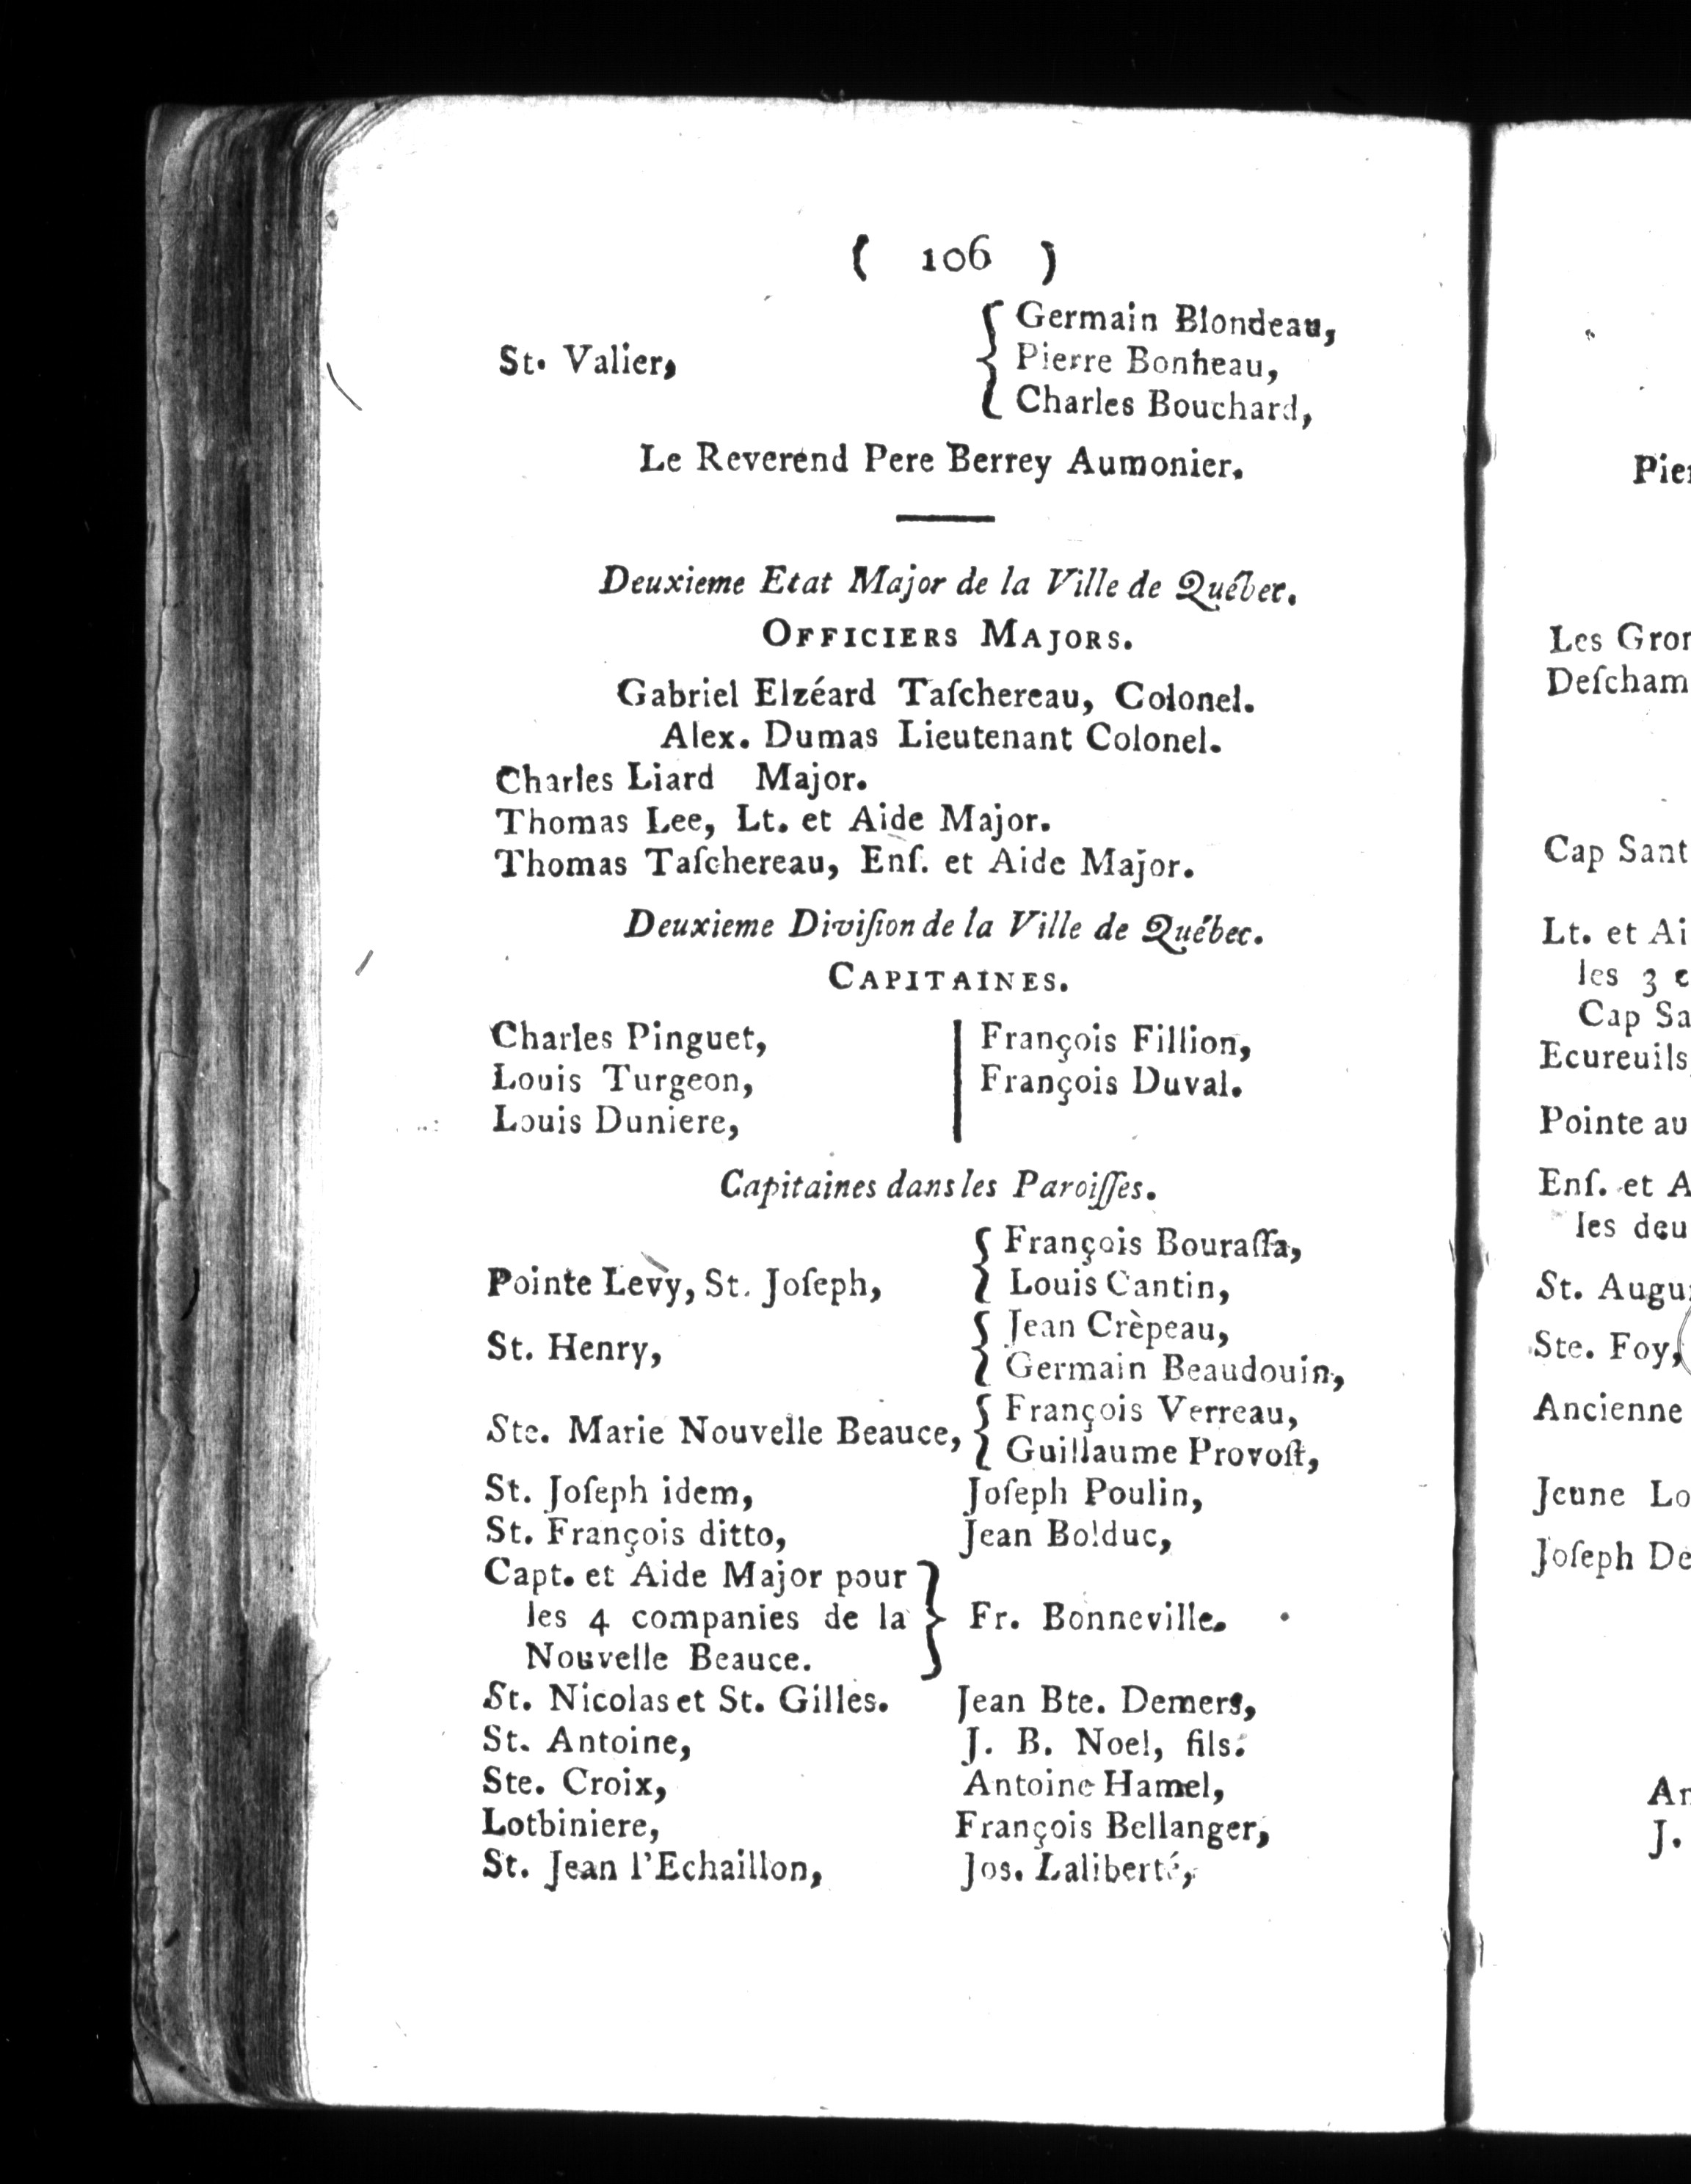 ( 106 )
St. Valier,
Germain Blondeau,
Pierre Bonheau,
Charles Bouchard,
Le Reverend Pere Berrey Aumonier.
Deuxieme Etat Major de la Ville de Québec.
OFFICIERS MAJORS.
Gabriel Elzéard Taſchereau, Colonel.
Alex. Dumas Lieutenant Colonel.
Charles Liard Major.
Thomas Lee, Lt. et Aide Major.
Thomas Taſchereau, Enſ. et Aide Major.
Deuxieme Diviſion de la Ville de Québec.
CAPITAINES.
Charles Pinguet,
Louis Turgeon,
Louis Duniere,
François Fillion,
François Duval.
Capitaines dans les Paroiſſes.
Pointe Levy, St. Joſeph,
François Bouraſſa,
Louis Cantin,
St. Henry,
Jean Crèpeau,
Germain Beaudouin,
Ste. Marie Nouvelle Beauce,
François Verreau,
Guillaume Provoſt,
St. Joſeph idem, Joſeph Poulin,
St. François ditto, Jean Bolduc,
Capt. et Aide Major pour
les 4 companies de la
Nouvelle Beauce.
Fr. Bonneville.
St. Nicolas et St. Gilles. Jean Bte. Demers,
St. Antoine, J. B. Noel, fils.
Ste. Croix, Antoine Hamel,
Lotbiniere, François Bellanger,
St. Jean l'Echaillon, Jos. Laliberté,
Les Gron
Deſcham
Cap Sant
Lt. et Ai
les 3 c
Cap Sa
Ecureuils,
Pointe au
Enſ. et A
les deu
St. Augu
Ste. Foy,
Ancienne
Jeune Lo
Joſeph De
J.